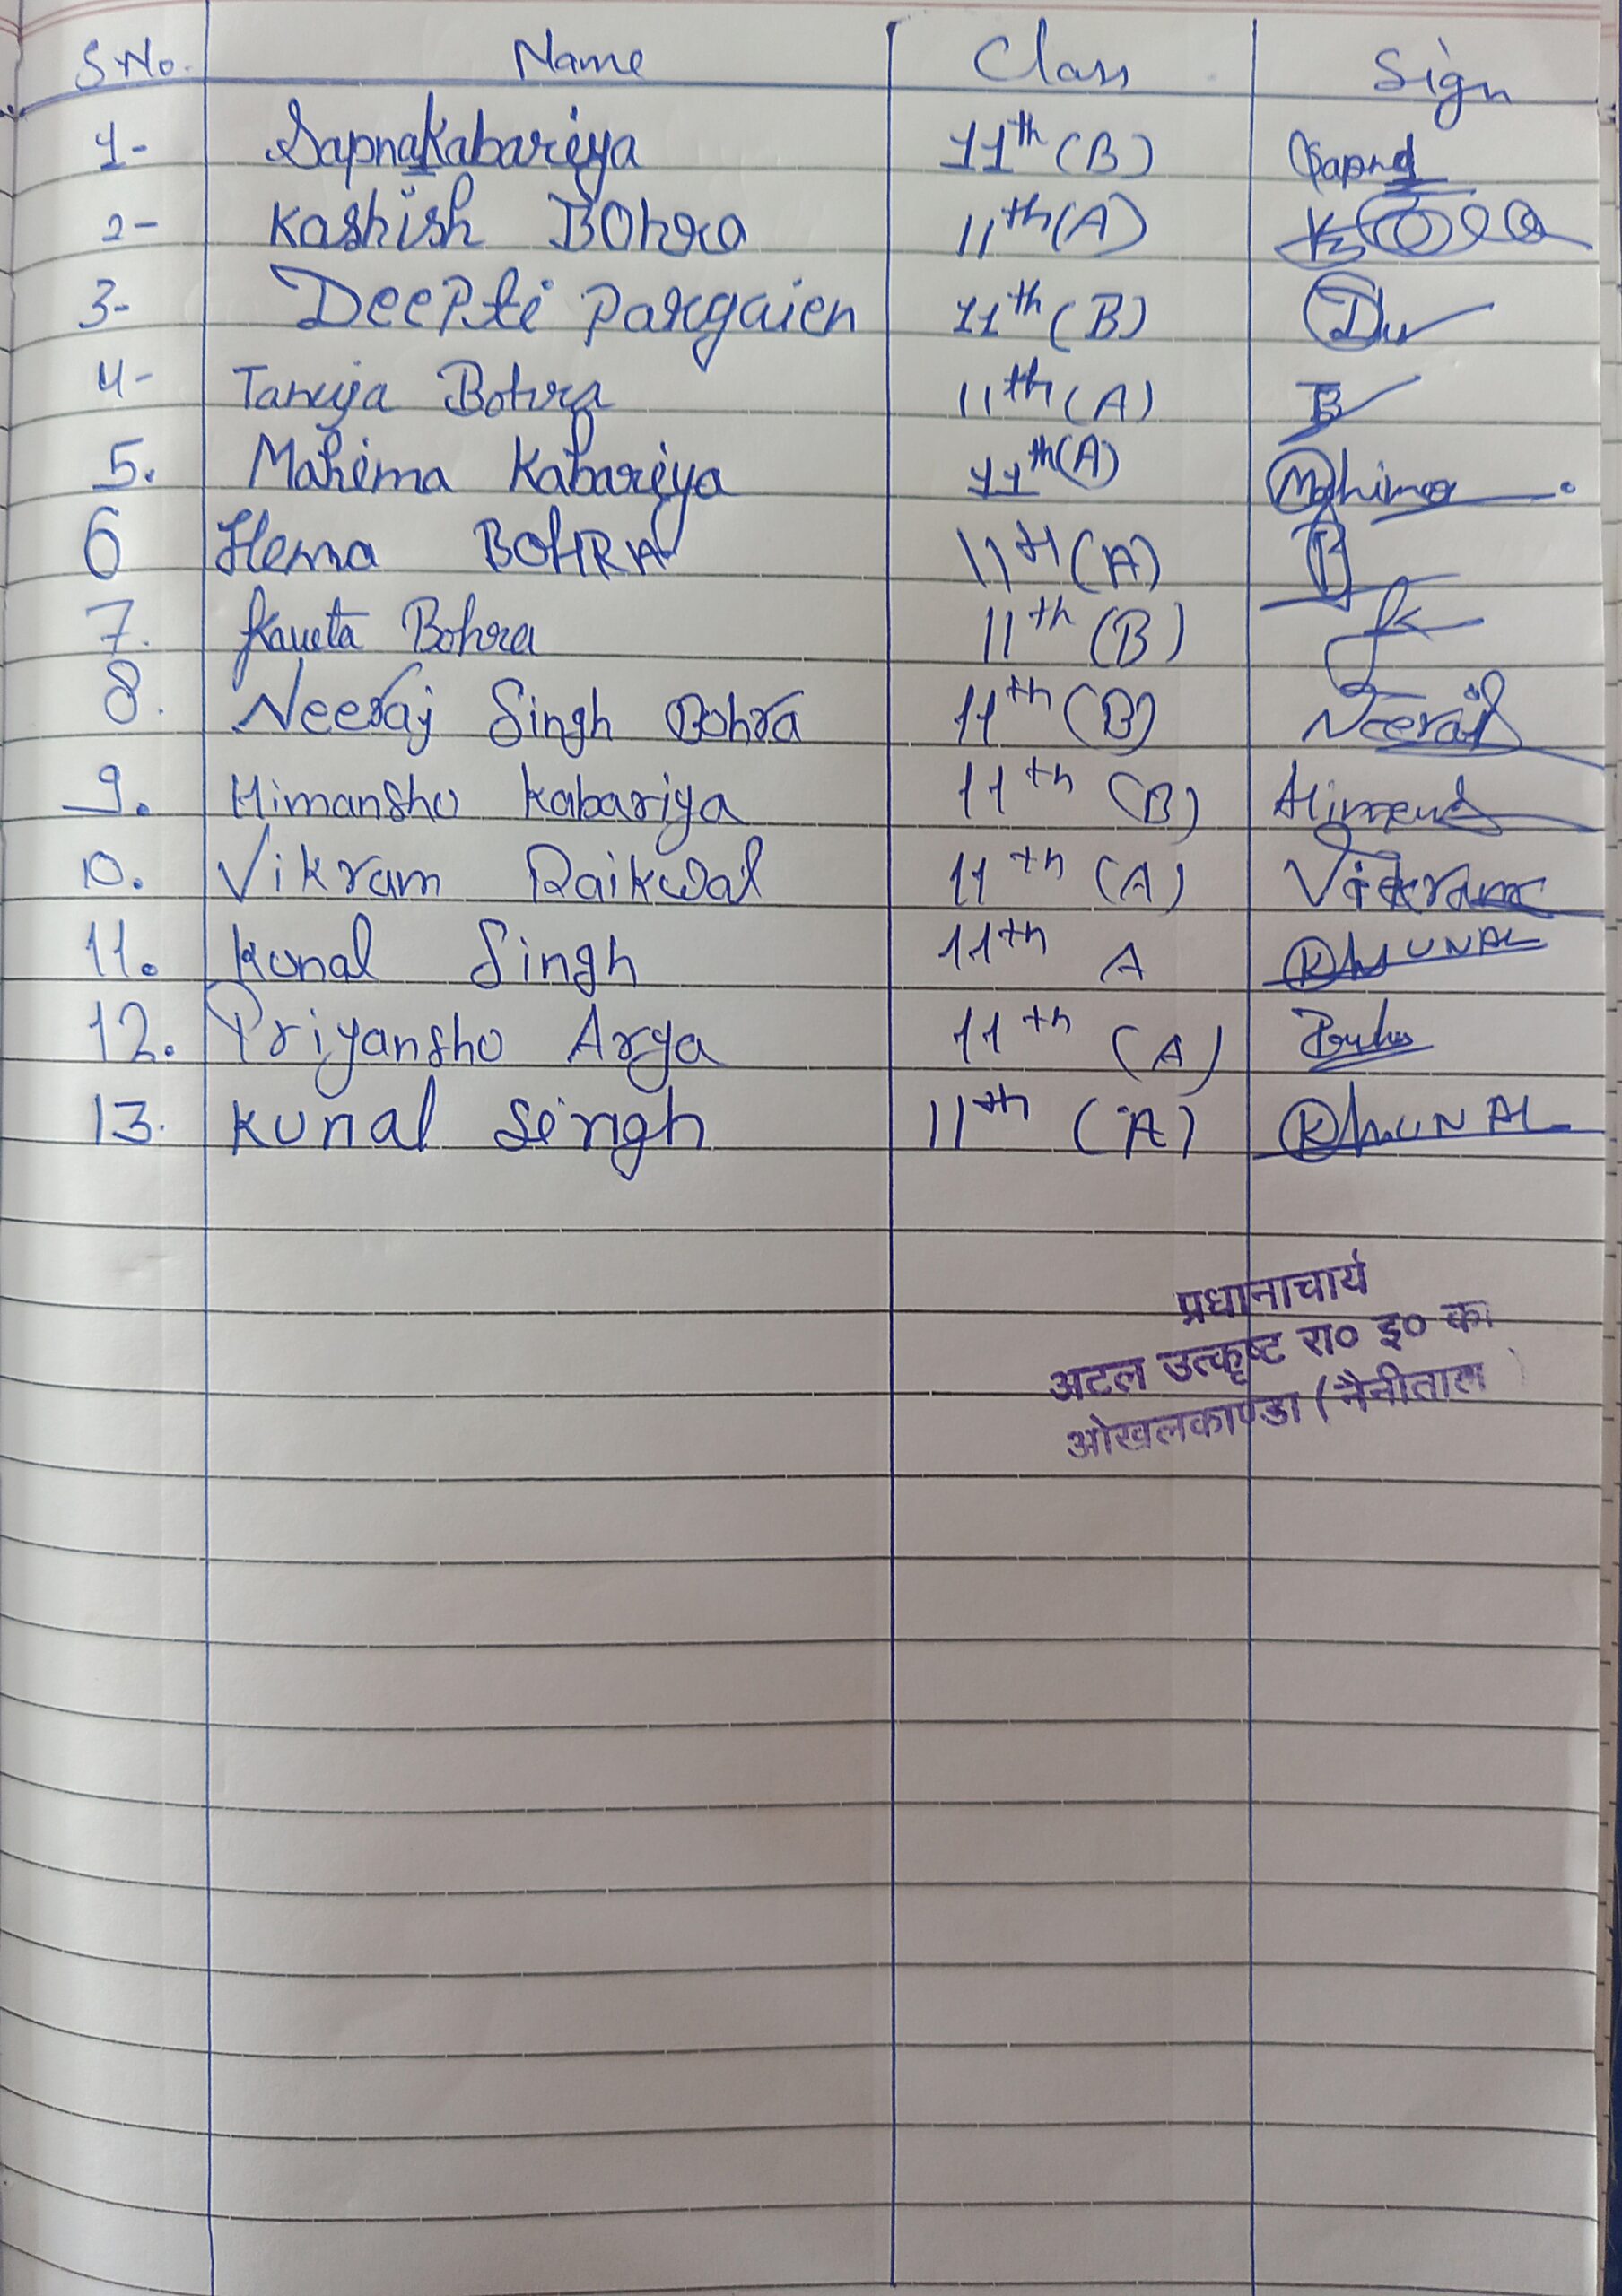 S.No. Name Class Sign
1- Sapna Kabariya 11th (B) Sapna
2- Kashish Bohra 11th (A)
3- Deepti Pargaien 11th (B)
4- Tanuja Bohra 11th (A)
5. Mahima Kabariya 11th (A) Mahima
6 Hema BOHRA 11th (A)
7. Kavita Bohra 11th (B)
8. Neeraj Singh Bohra 11th (B) Neeraj
9. Himansho Kabariya 11th (B)
10. Vikram Raikwal 11th (A) Vikram
11. Kunal Singh 11th A KUNAL
12. Priyansho Arya 11th (A)
13. Kunal Singh 11th (A) KUNAL
प्रधानाचार्य
अटल उत्कृष्ट रा० इ० का
ओखलकाण्डा (नैनीताल)